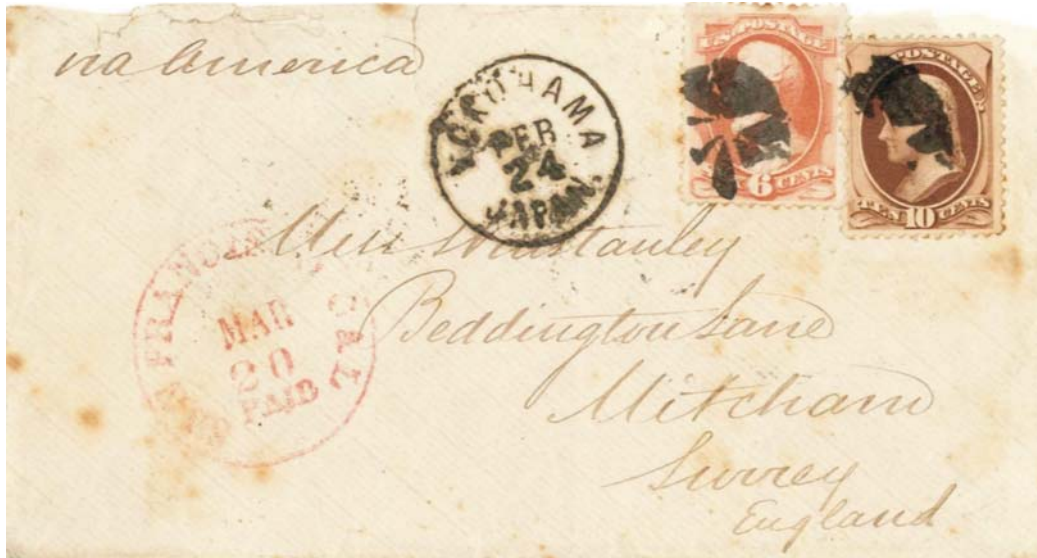 via America
YOKOHAMA
FEB
24
JAPAN.
U.S. POSTAGE
6 CENTS
U.S. POSTAGE
TEN 10 CENTS
SAN FRANCISCO CAL
MAR
20
PAID
Stanley
Beddington Lane
Mitcham
Surrey
England